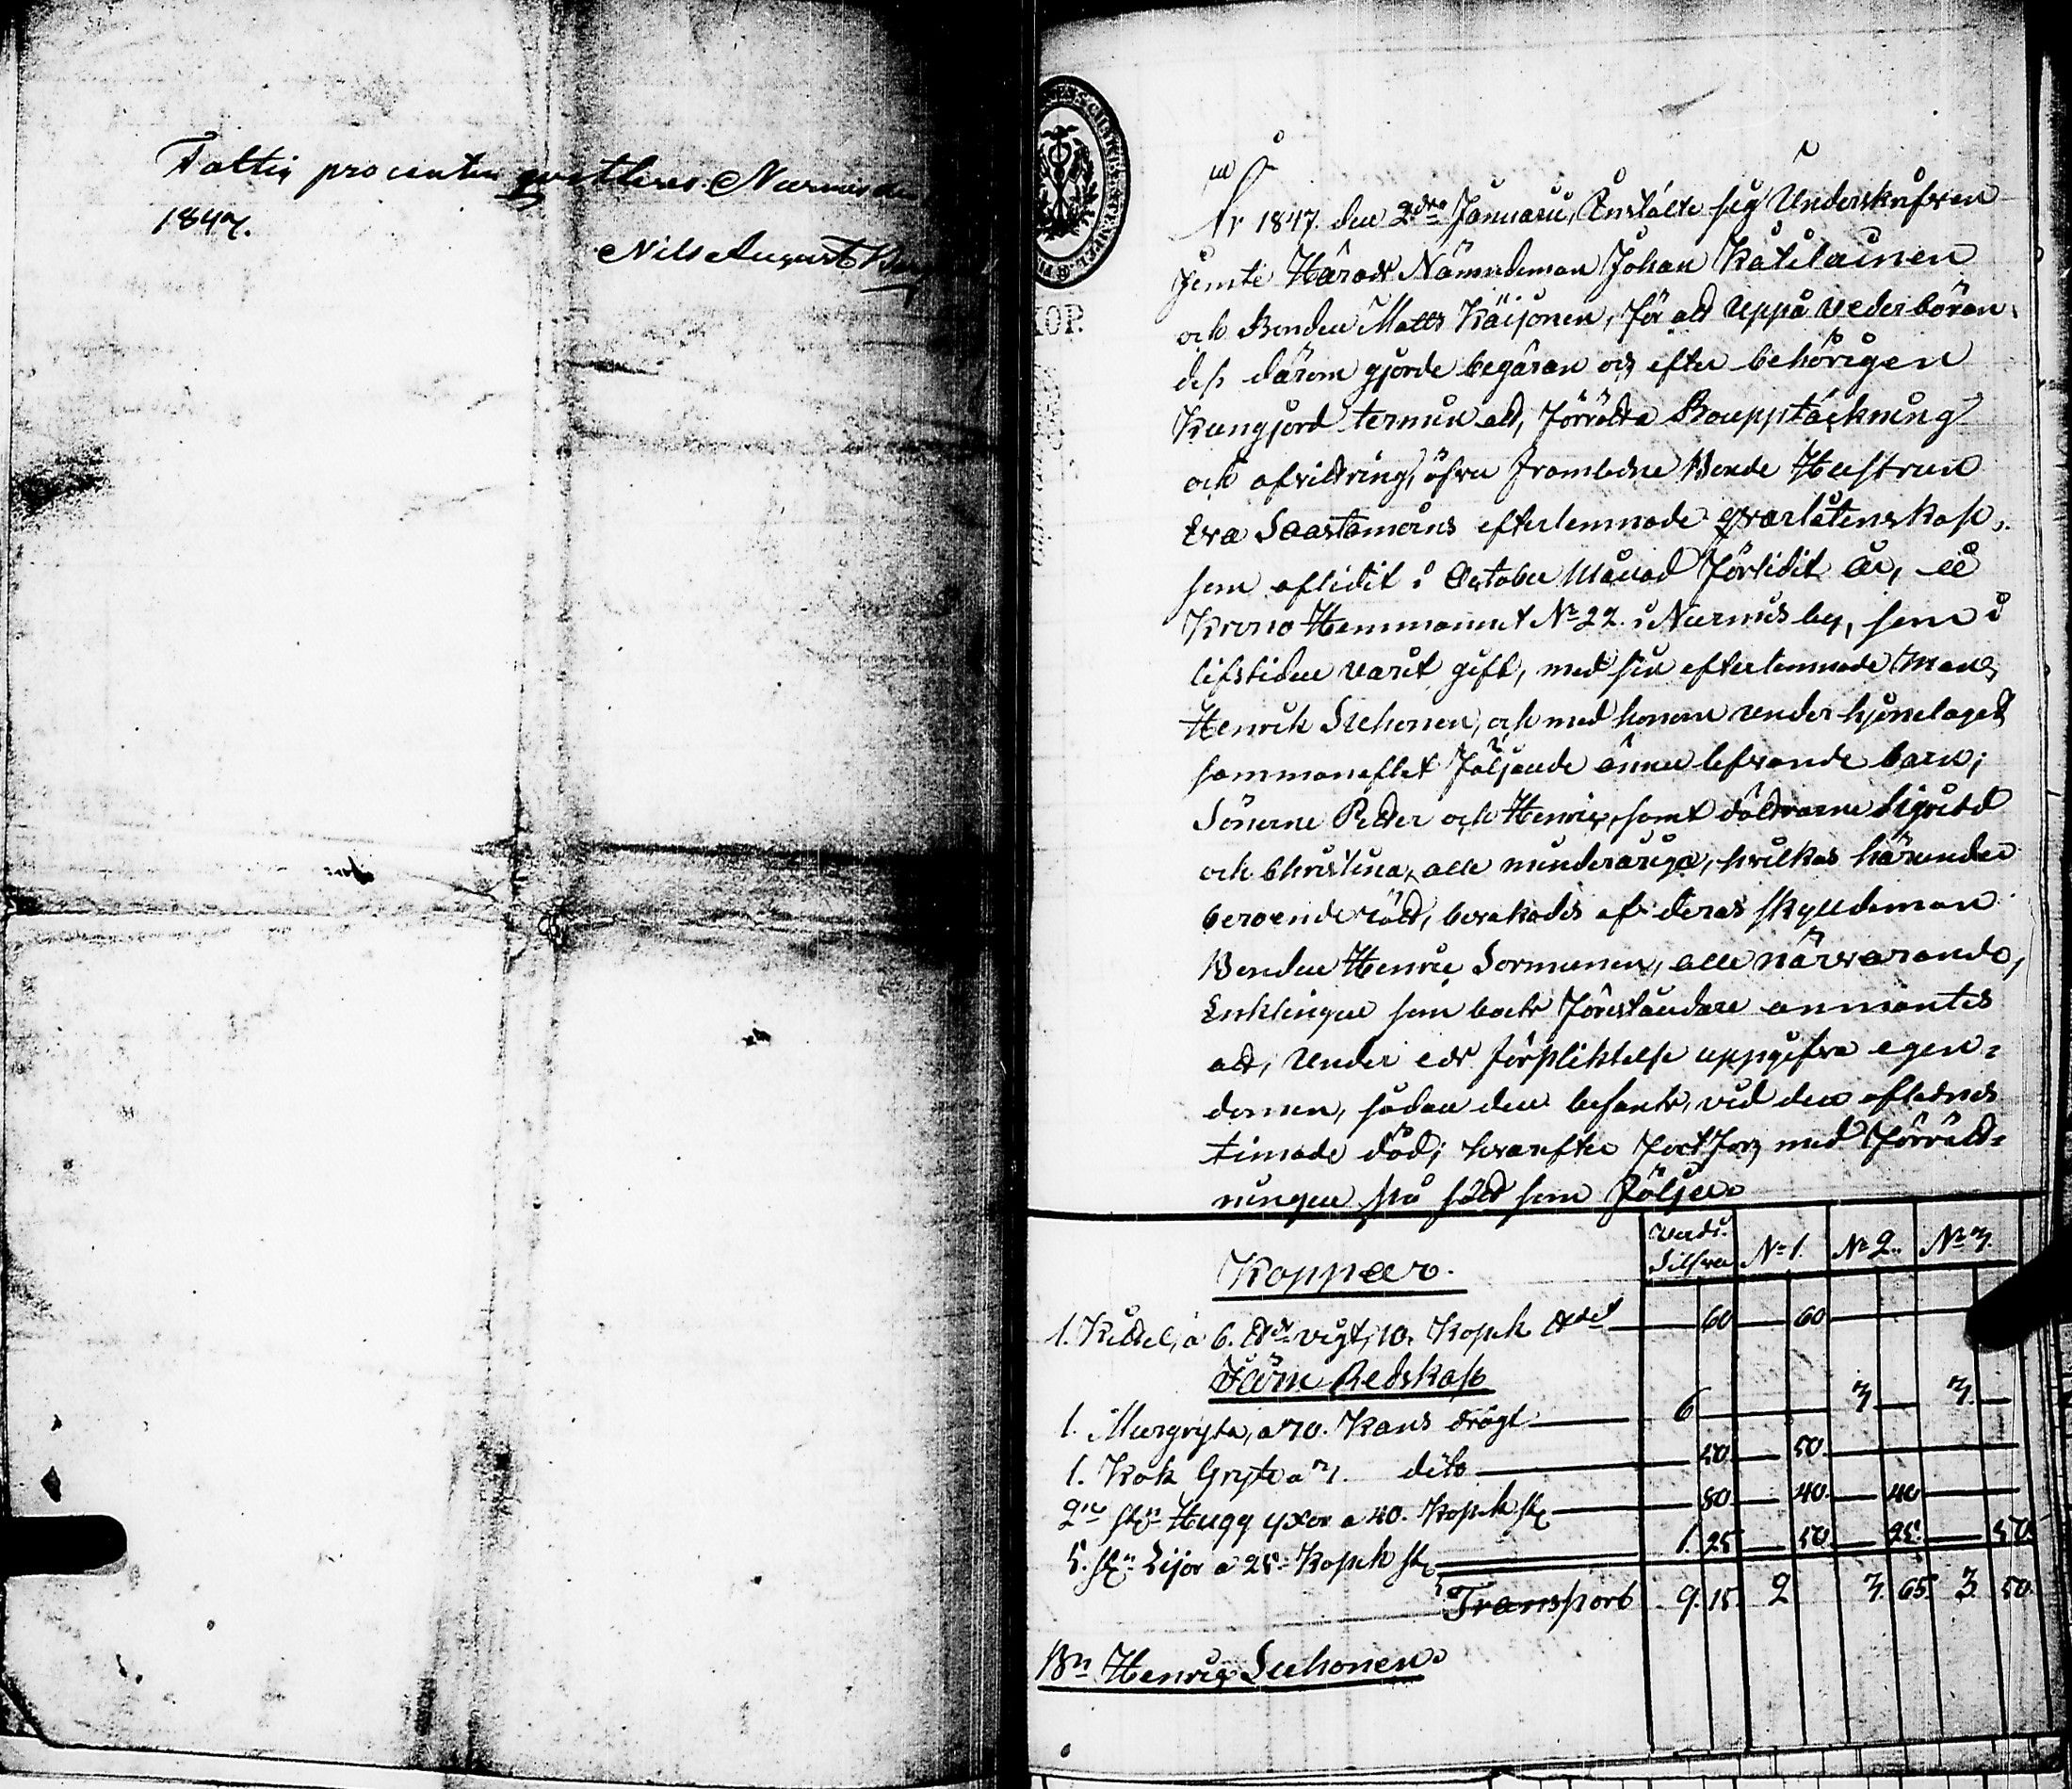 Fattig procenten qvitteras. Nurmis den
1847.
Nils August
KOP.
År 1847. den 2dra Januarii, Instälte sig Underskrifven
jemte Härads Nämndeman Johan Katilainen
och Bonden Matts Käijönen, för att uppå vederböran-
des därom gjorde begäran och efter behörigen
Kungjord termin att, förrätta Boupptäckning
och afvittring, öfver framledne Bonde Hustrun
Eva Saastamoins efterlemnade qvarlåtenskap,
som aflidit i October Månad förlidit år, å
Krono Hemmanet No 22. i Nurmis by, som i
lifstiden varit gift, med sin efterlemnade Man
Henrik Suhonen, och med honom under hjonelaget
sammanaflet följande ännu lefvande barn;
Sönerne Petter och Henric, samt döttrarne Sigrid
och Christina, alle minderåriga, hvilkas härunder
beroende rätt, bevakades af deras skyldeman
Bonden Henric Sormunen, alle närvarande,
Enklingen som boets föreståndare anmantes
att, under eds förpliktelse uppgifva egen-
domen, sådan den befants, vid den aflednes
timade död; hvarefter fortfors med förrätt-
ningen på sätt som följer.
Koppar. Värde Silfver No 1. No 2. No 3.
1. Kittel, a 6. vigt, 10. Kopek 60 60
Järn Redskap
1. Murgryta, a 70. Kans drägt 6 3 3
1. Kok Gryta a 3. dito 50 50
2ne st. Hugg yxor a 40. Kopek st. 80 40 40
5. st. Lijor a 25. Kopek st. 1. 25 50 25 50
Transport 9. 15. 2 3. 65. 3. 50.
Bn Henric Suhonen.